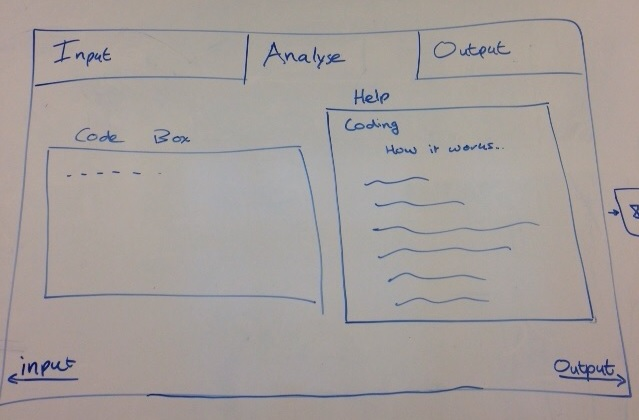 Input
Analyse
Output
Help
Code Box
Coding
How it works..
input
Output